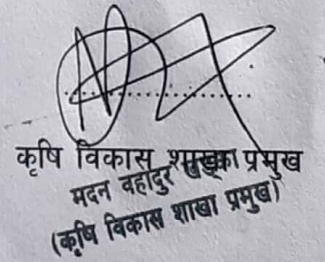 कृषि विकास शाखा प्रमुख
मदन वहादुर खड्का
(कृषि विकास शाखा प्रमुख)